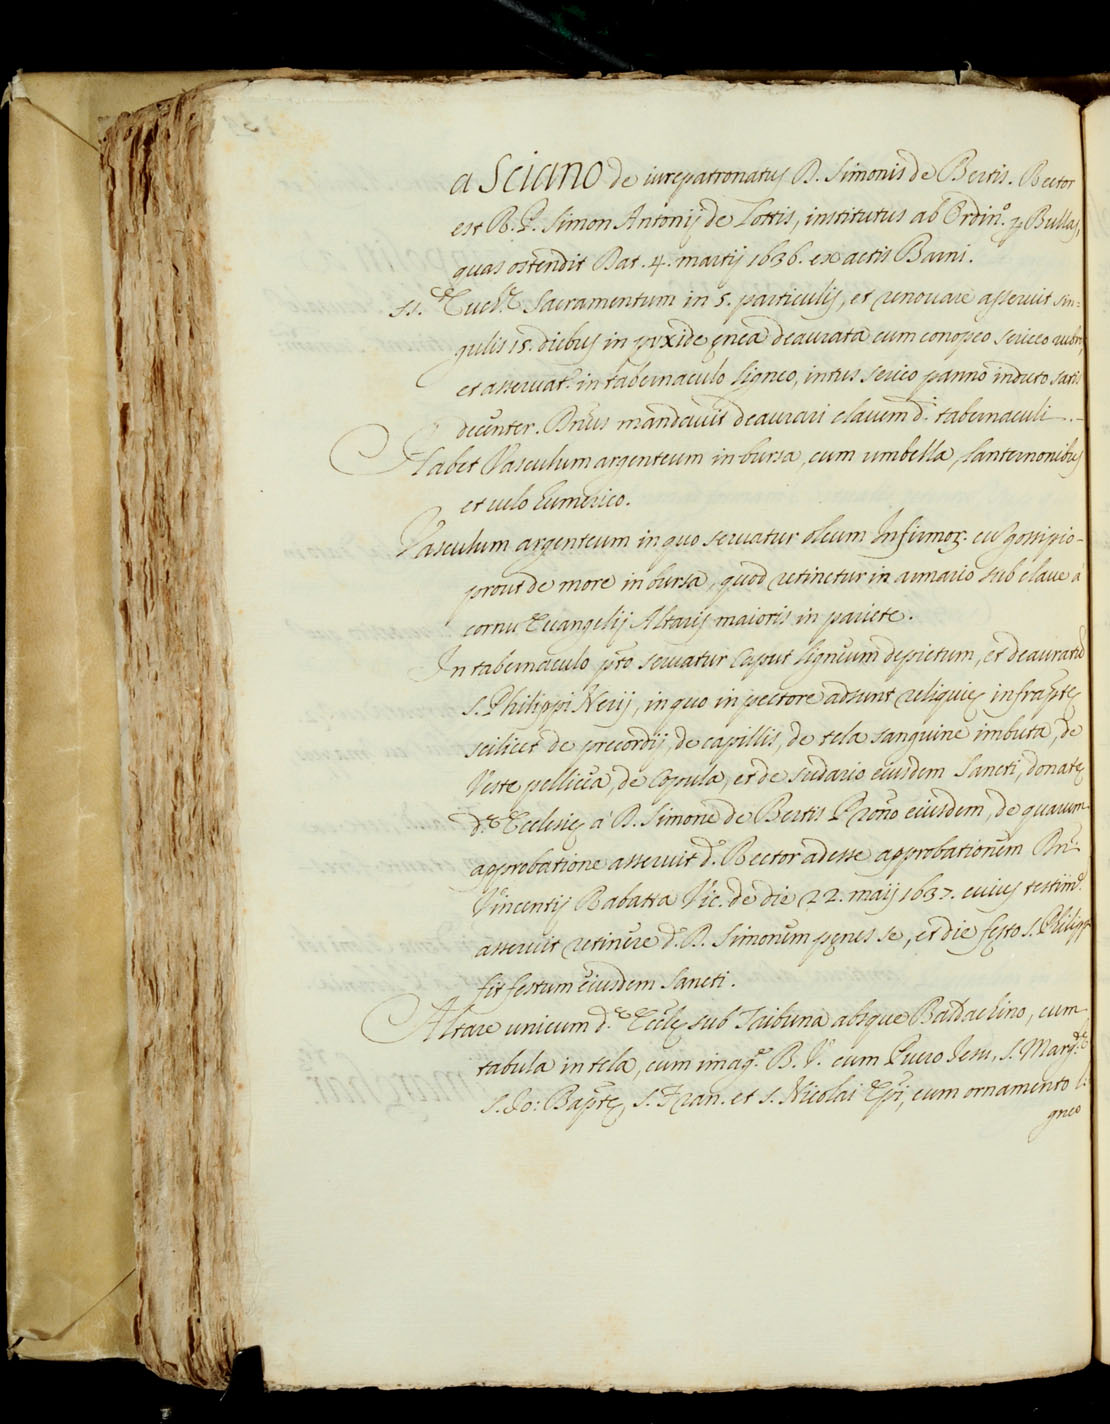 a Sciano de iurepatronatus D. Simonis de Bertis. Rector
est R. P. Simon Antonij de Lottis, institutus ab Ordin.º p Bullas,
quas ostendit Dat. 4. martij 1636. ex actis Barni.
SS. Euch. Sacramentum in 5. particulis, et renouare asseruit sin=
gulis 15. diebus in pyxide ęnea deaurata cum conopeo sericeo rubro,
et asseruat. in tabernaculo ligneo, intus serico panno induto satis
decenter. Dnus mandauit deaurari clauem d. tabernaculi
Habet Vasculum argenteum in bursa, cum umbella, lanternonibus
et uelo humerico.
Vasculum argenteum in quo seruatur oleum Infirmoȝ. cu gossipio-
prout de more in bursa, quod retinetur in armario sub claue à
cornu Euangelij Altaris maioris in pariete.
In tabernaculo pto seruatur Caput ligneum depictum, et deauratũ
S. Philippi Nerij, in quo in pectore adsunt reliquię infraptę
scilicet de precordij, de capillis, de tela sanguine imbuta, de
Veste pellicea, de Copula, et de sudario eiusdem Sancti, donatę
d. Ecclesię à D. Simone de Bertis Prono eiusdem, de quarum
approbatione asseruit d. Rector adesse approbationem Dni
Vincentij Rabatta Vic. de die 22. maij 1637. cuius testim.
asseruit retinere d. D. Simonem pęnes se, et die festo S. Philippi
fit festum eiusdem Sancti.
Altare unicum d. Ecclę sub Tribuna absque Baldachino, cum
tabula in tela, cum imag.º B. V. cum Puero Iesu, S. Marg.
S. Io: Baptę, S. Fran. et S. Nicolai Epi, cum ornamento li
gneo